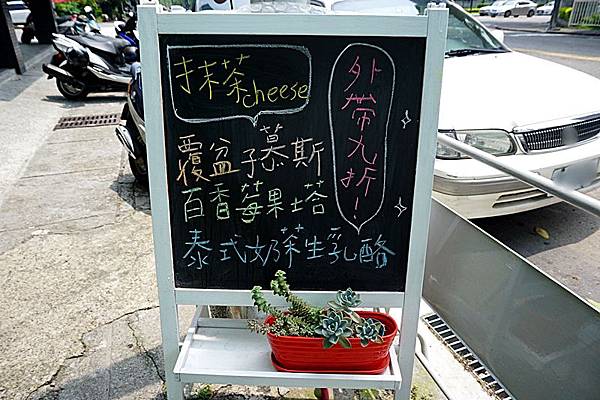 抹茶cheese
外帶九折!
覆盆子慕斯
百香莓果塔
泰式奶茶生乳酪